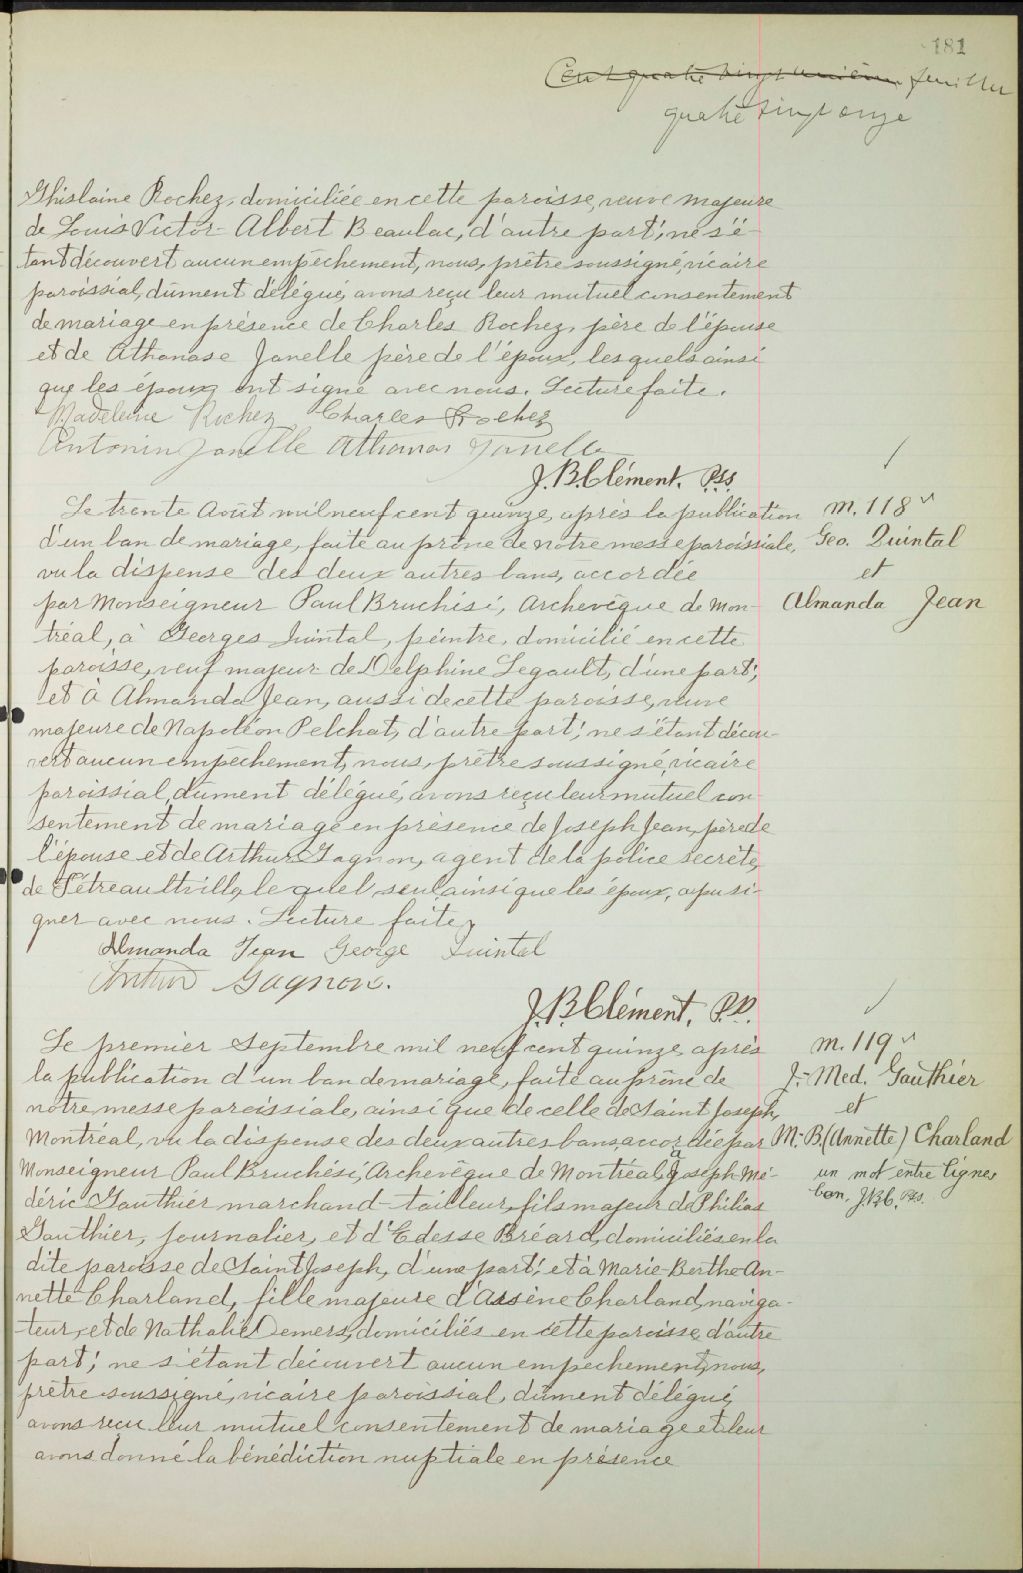 181
Cent quatre vingt unième feuillet
quatre vingt onze
Ghislaine Rochez, domiciliée en cette paroisse, veuve majeure
de Louis Victor-Albert Beaulac, d'autre part; ne s'é-
tant découvert aucun empêchement, nous, prêtre soussigné, vicaire
paroissial, dûment délégué, avons reçu leur mutuel consentement
de mariage en présence de Charles Rochez, père de l'épouse
et de Athanase Janelle père de l'époux, lesquels ainsi
que les époux ont signé avec nous. Lecture faite.
Madeleine Rochez Charles Rochez
Antonin Janelle Athanas Janelle
J.B. Clément. p.s.s.
Le trente Août mil neuf cent quinze, après la publication
d'un ban de mariage, faite au prône de notre messe paroissiale,
vu la dispense des deux autres bans, accordée
par Monseigneur Paul Bruchési, Archevêque de Mon-
tréal, à Georges Quintal, peintre, domicilié en cette
paroisse, veuf majeur de Delphine Legault, d'une part;
et à Almanda Jean, aussi de cette paroisse, veuve
majeure de Napoléon Pelchat, d'autre part; ne s'étant décou-
vert aucun empêchement, nous, prêtre soussigné, vicaire
paroissial, dûment délégué, avons reçu leur mutuel con-
sentement de mariage en présence de Joseph Jean, père de
l'épouse et de Arthur Gagnon, agent de la police secrète,
de Tétreaultville, lequel seul, ainsi que les époux, a pu si-
gner avec nous. Lecture faite.
Almanda Jean George Quintal
Arthur Gagnon.
J.B. Clément, p.s.s.
m. 118
Geo. Quintal
et
Almanda Jean
Le premier Septembre mil neuf cent quinze, après
la publication d'un ban de mariage, faite au prône de
notre messe paroissiale, ainsi que de celle de Saint Joseph,
Montréal, vu la dispense des deux autres bans, accordée par
Monseigneur Paul Bruchési, Archevêque de Montréal, à Joseph-Mé-
déric Gauthier marchand-tailleur, fils majeur de Philias
Gauthier, journalier, et d'Edesse Bréard, domiciliés en la
dite paroisse de Saint Joseph, d'une part; et à Marie-Berthe-An-
nette Charland, fille majeure d'Arsène Charland, naviga-
teur, et de Nathalie Demers, domiciliés en cette paroisse, d'autre
part; ne s'étant découvert aucun empêchement, nous,
prêtre soussigné, vicaire paroissial, dûment délégué,
avons reçu leur mutuel consentement de mariage et leur
avons donné la bénédiction nuptiale en présence
m. 119
J.-Med. Gauthier
et
M.-B. (Annette) Charland
un mot entre lignes
bon. J.B.C. p.s.s.